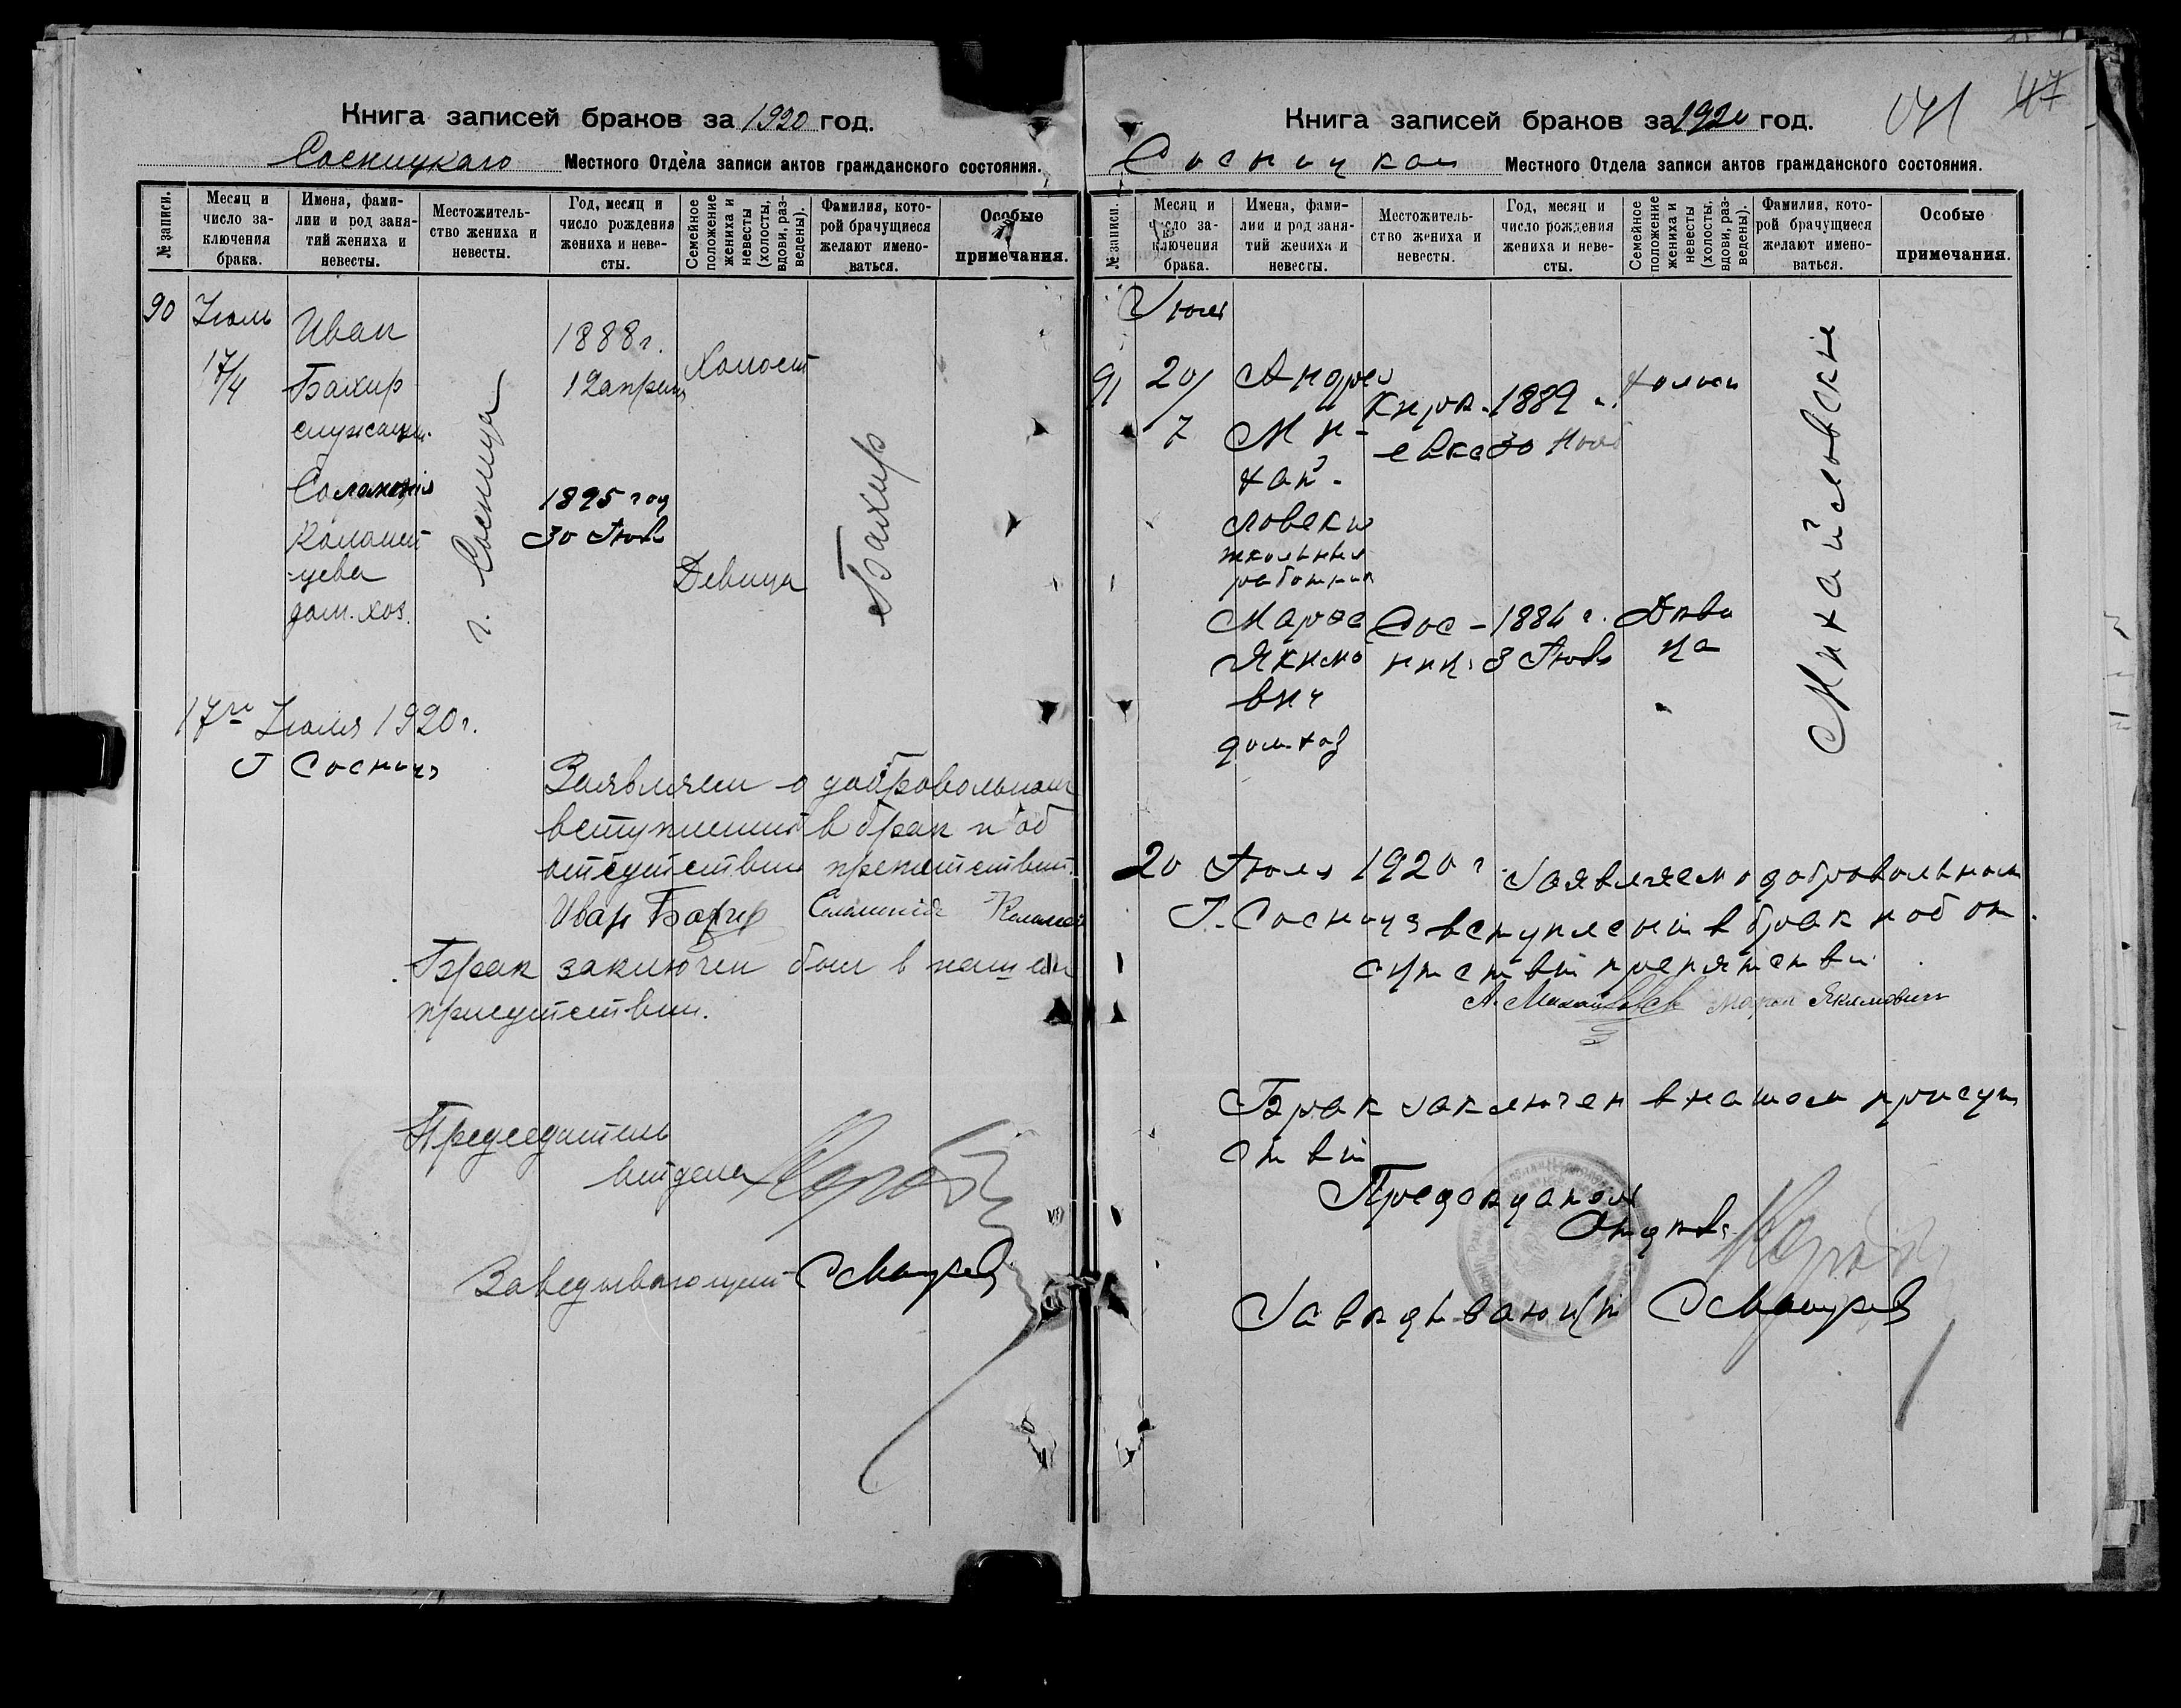 Книга записей браков за 1920 год.
Сосницкаго Местного Отдела записи актов гражданского состояния.
№ записи.
Месяц и число заключения брака.
Имена, фамилии и род занятий жениха и невесты.
Местожительство жениха и невесты.
Год, месяц и число рождения жениха и невесты.
Семейное положение жениха и невесты (холосты, вдови, разведены).
Фамилия, которой брачущиеся желают именоваться.
Особые примечания.
90 Июль
17/4
Иван
Бахир
служащ.
1888 г.
12 апреля
Холост
г. Сосница
Бахир
Соломония
Коломей
-цева
дом. хоз.
1895 год
30 Июля
Девица
17го Июля 1920 г.
Г Сосница
Заявляем о добровольном
вступлении в брак и об
отсутствии препятствий.
Иван Бахир
Брак заключен был в нашем
присутствии.
Председатель
отдела
Заведывающий
47
Книга записей браков за 1920 год.
Местного Отдела записи актов гражданского состояния.
№ записи.
Месяц и число заключения брака.
Имена, фамилии и род занятий жениха и невесты.
Местожительство жениха и невесты.
Год, месяц и число рождения жениха и невесты.
Семейное положение жениха и невесты (холосты, вдови, разведены).
Фамилия, которой брачущиеся желают именоваться.
Особые примечания.
Июля
91 20/7
Андрей
Ми-
хай-
ловский
школьный
работник
1889 г.
30 Нояб
холост
Михайловские
Мария
Якимо
вич
дом. хоз
Сос-
ниц.
1884 г.
8 Июля
Деви
ца
20 Июля 1920 г Заявляем о добровольном
Г. Сосница вступлении в брак и об от
сутствии препятстви
Мария Якимович
Брак заключен в нашем присут
ствии
Председатель
Отдела
Заведывающий